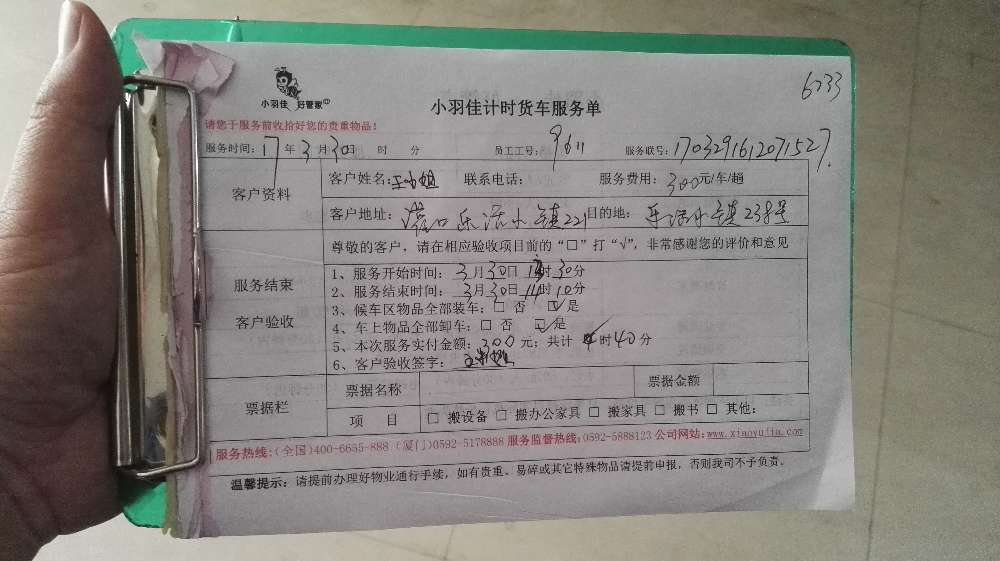 6233
小羽佳 好管家
小羽佳计时货车服务单
请您于服务前收拾好您的贵重物品！
服务时间：17年3月30日 时 分 员工工号：9611 服务联号：1703291612071527
客户资料
客户姓名：王小姐 联系电话： 服务费用：300元/车/趟
客户地址：乐活小镇221 目的地：乐活小镇238号
服务结束
客户验收
尊敬的客户，请在相应验收项目前的“□”打“√”，非常感谢您的评价和意见
1、服务开始时间：3月30日 时30分
2、服务结束时间：3月30日11时10分
3、候车区物品全部装车：□ 否 □ 是
4、车上物品全部卸车：□ 否 □ 是
5、本次服务实付金额：300元；共计 时40分
6、客户验收签字：
票据栏
票据名称 票据金额
项 目 □ 搬设备 □ 搬办公家具 □ 搬家具 □ 搬书 □ 其他：
服务热线：(全国)400-6655-888 (厦门)0592-5178888 服务监督热线：0592-5888123 公司网站：www.xiaoyujia.com
温馨提示：请提前办理好物业通行手续，如有贵重、易碎或其它特殊物品请提前申报，否则我司不予负责。